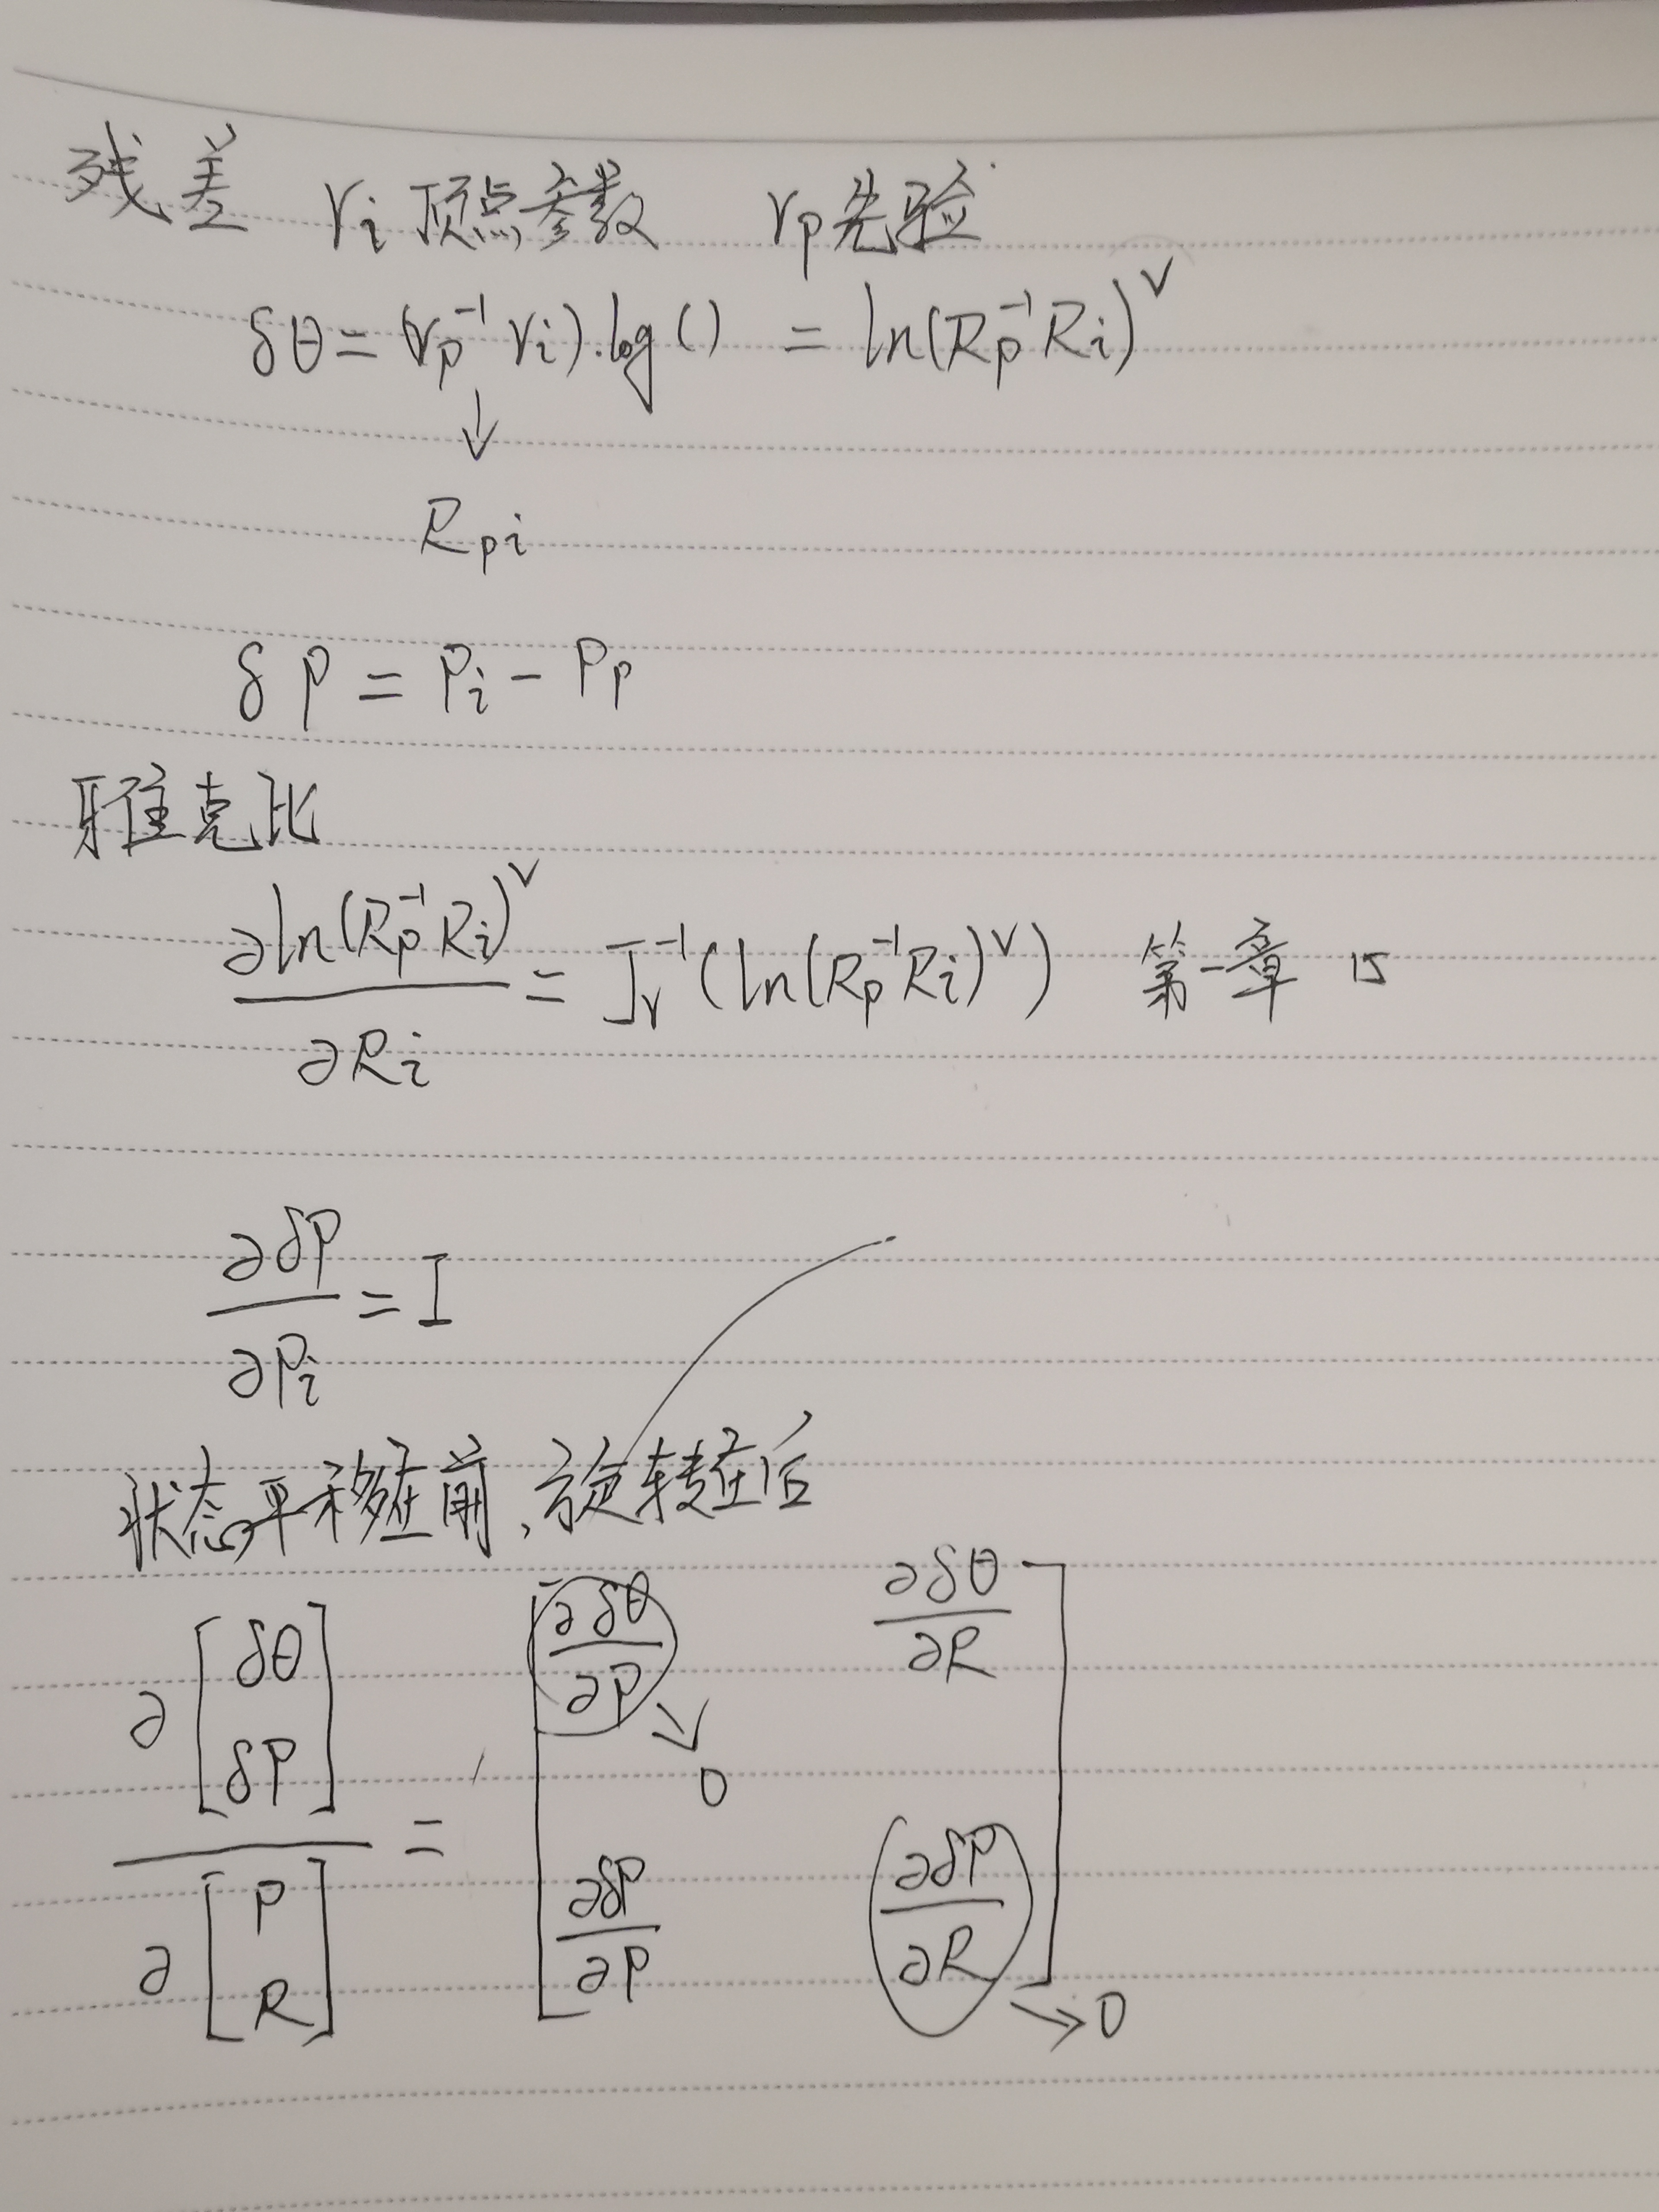 残差 r_i 顶点参数 r_p 先验
δθ = (r_p^{-1} r_i).log() = ln(R_p^{-1} R_i)^∨
↓
R_{pi}
δp = P_i - P_p
雅克比
∂ln(R_p^{-1} R_i)^∨ / ∂R_i = J_r^{-1}(ln(R_p^{-1} R_i)^∨) 第一章 15
∂δP / ∂P_i = I
状态平移在前,旋转在后
∂[δθ δP] / ∂[P R] = [∂δθ/∂P → 0 ∂δθ/∂R
∂δP/∂P ∂δP/∂R → 0]